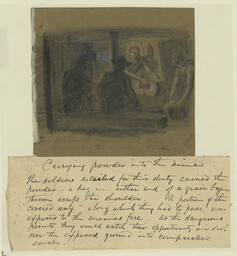 Carrying powder into the mine
the soldiers detailed for this duty carried the
powder, a keg in either end of a grain bag
thrown across the shoulder. A portion of the
covered way, along which they had to pass, was
exposed to the enemies fire at the dangerous
points they would watch their opportunity and
over the exposed ground into comparative
safety.